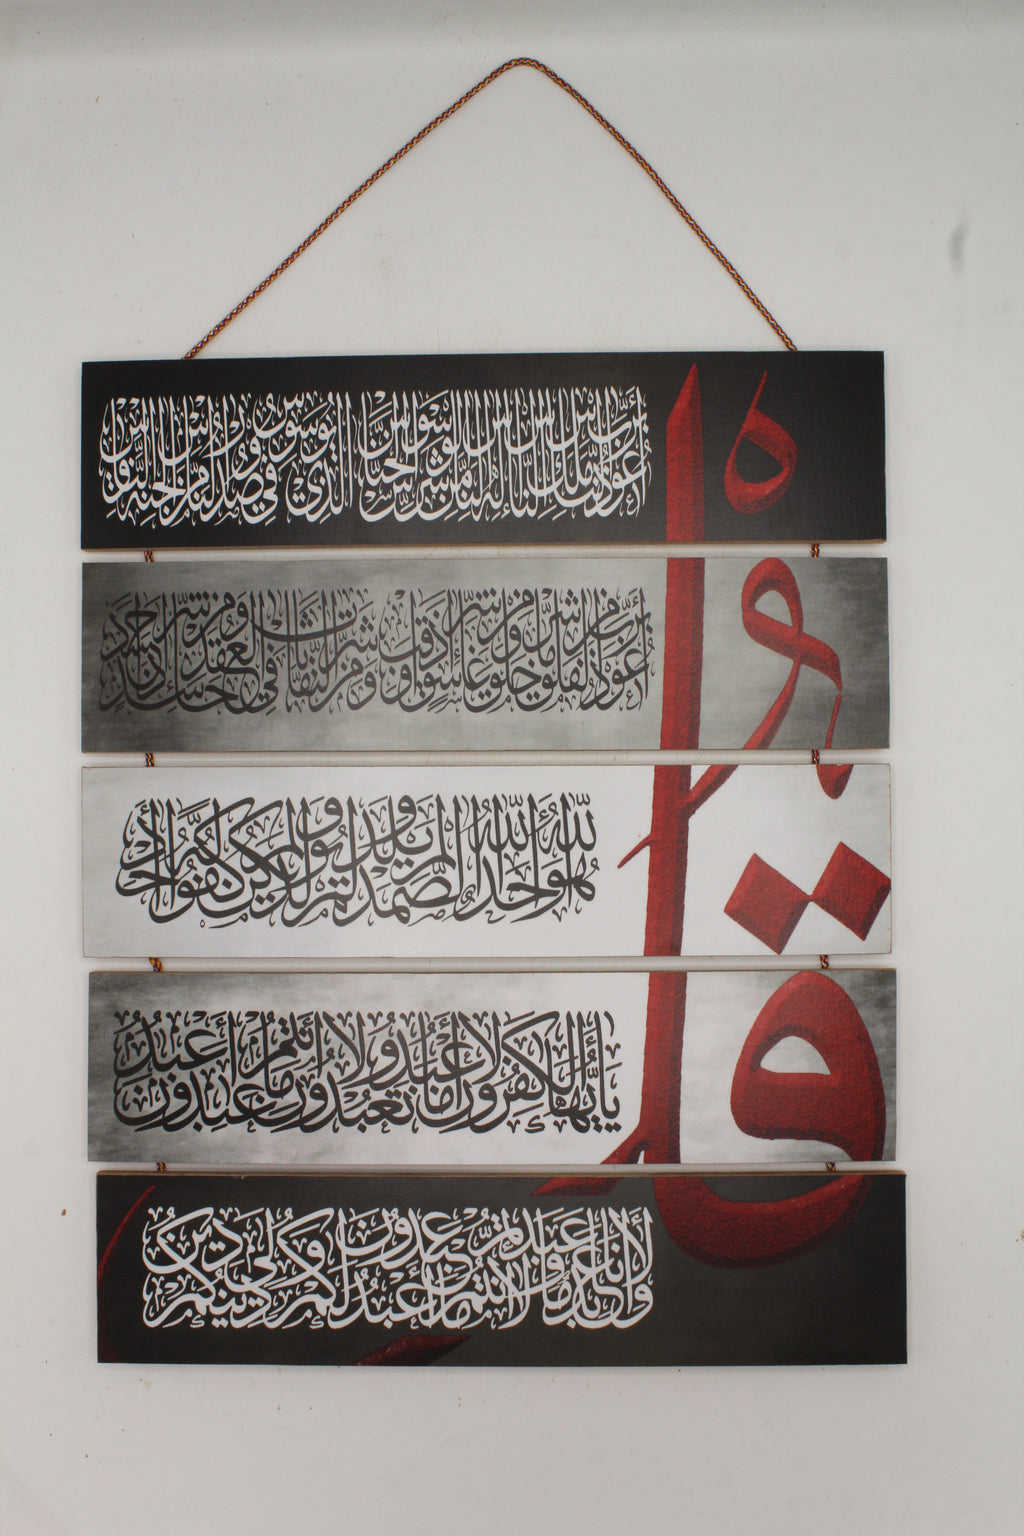 قل
أعوذ برب الناس ملك الناس إله الناس من شر الوسواس الخناس الذي يوسوس في صدور الناس من الجنة والناس
أعوذ برب الفلق من شر ما خلق ومن شر غاسق إذا وقب ومن شر النفاثات في العقد ومن شر حاسد إذا حسد
هو الله أحد الله الصمد لم يلد ولم يولد ولم يكن له كفوا أحد
يا أيها الكفرون لا أعبد ما تعبدون ولا أنتم عبدون ما أعبد
ولا أنا عابد ما عبدتم ولا أنتم عبدون ما أعبد لكم دينكم ولي دين